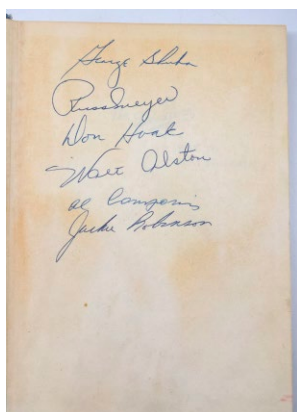 George Shuba
Russ Meyer
Don Hoak
Walt Alston
Al Campanis
Jackie Robinson